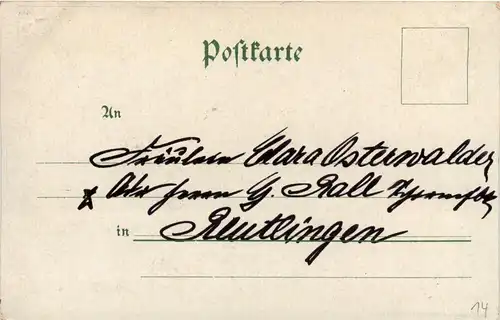 Postkarte
An
Fräulein Clara Osterwalder
Herrn G. Ball
in Reutlingen
14